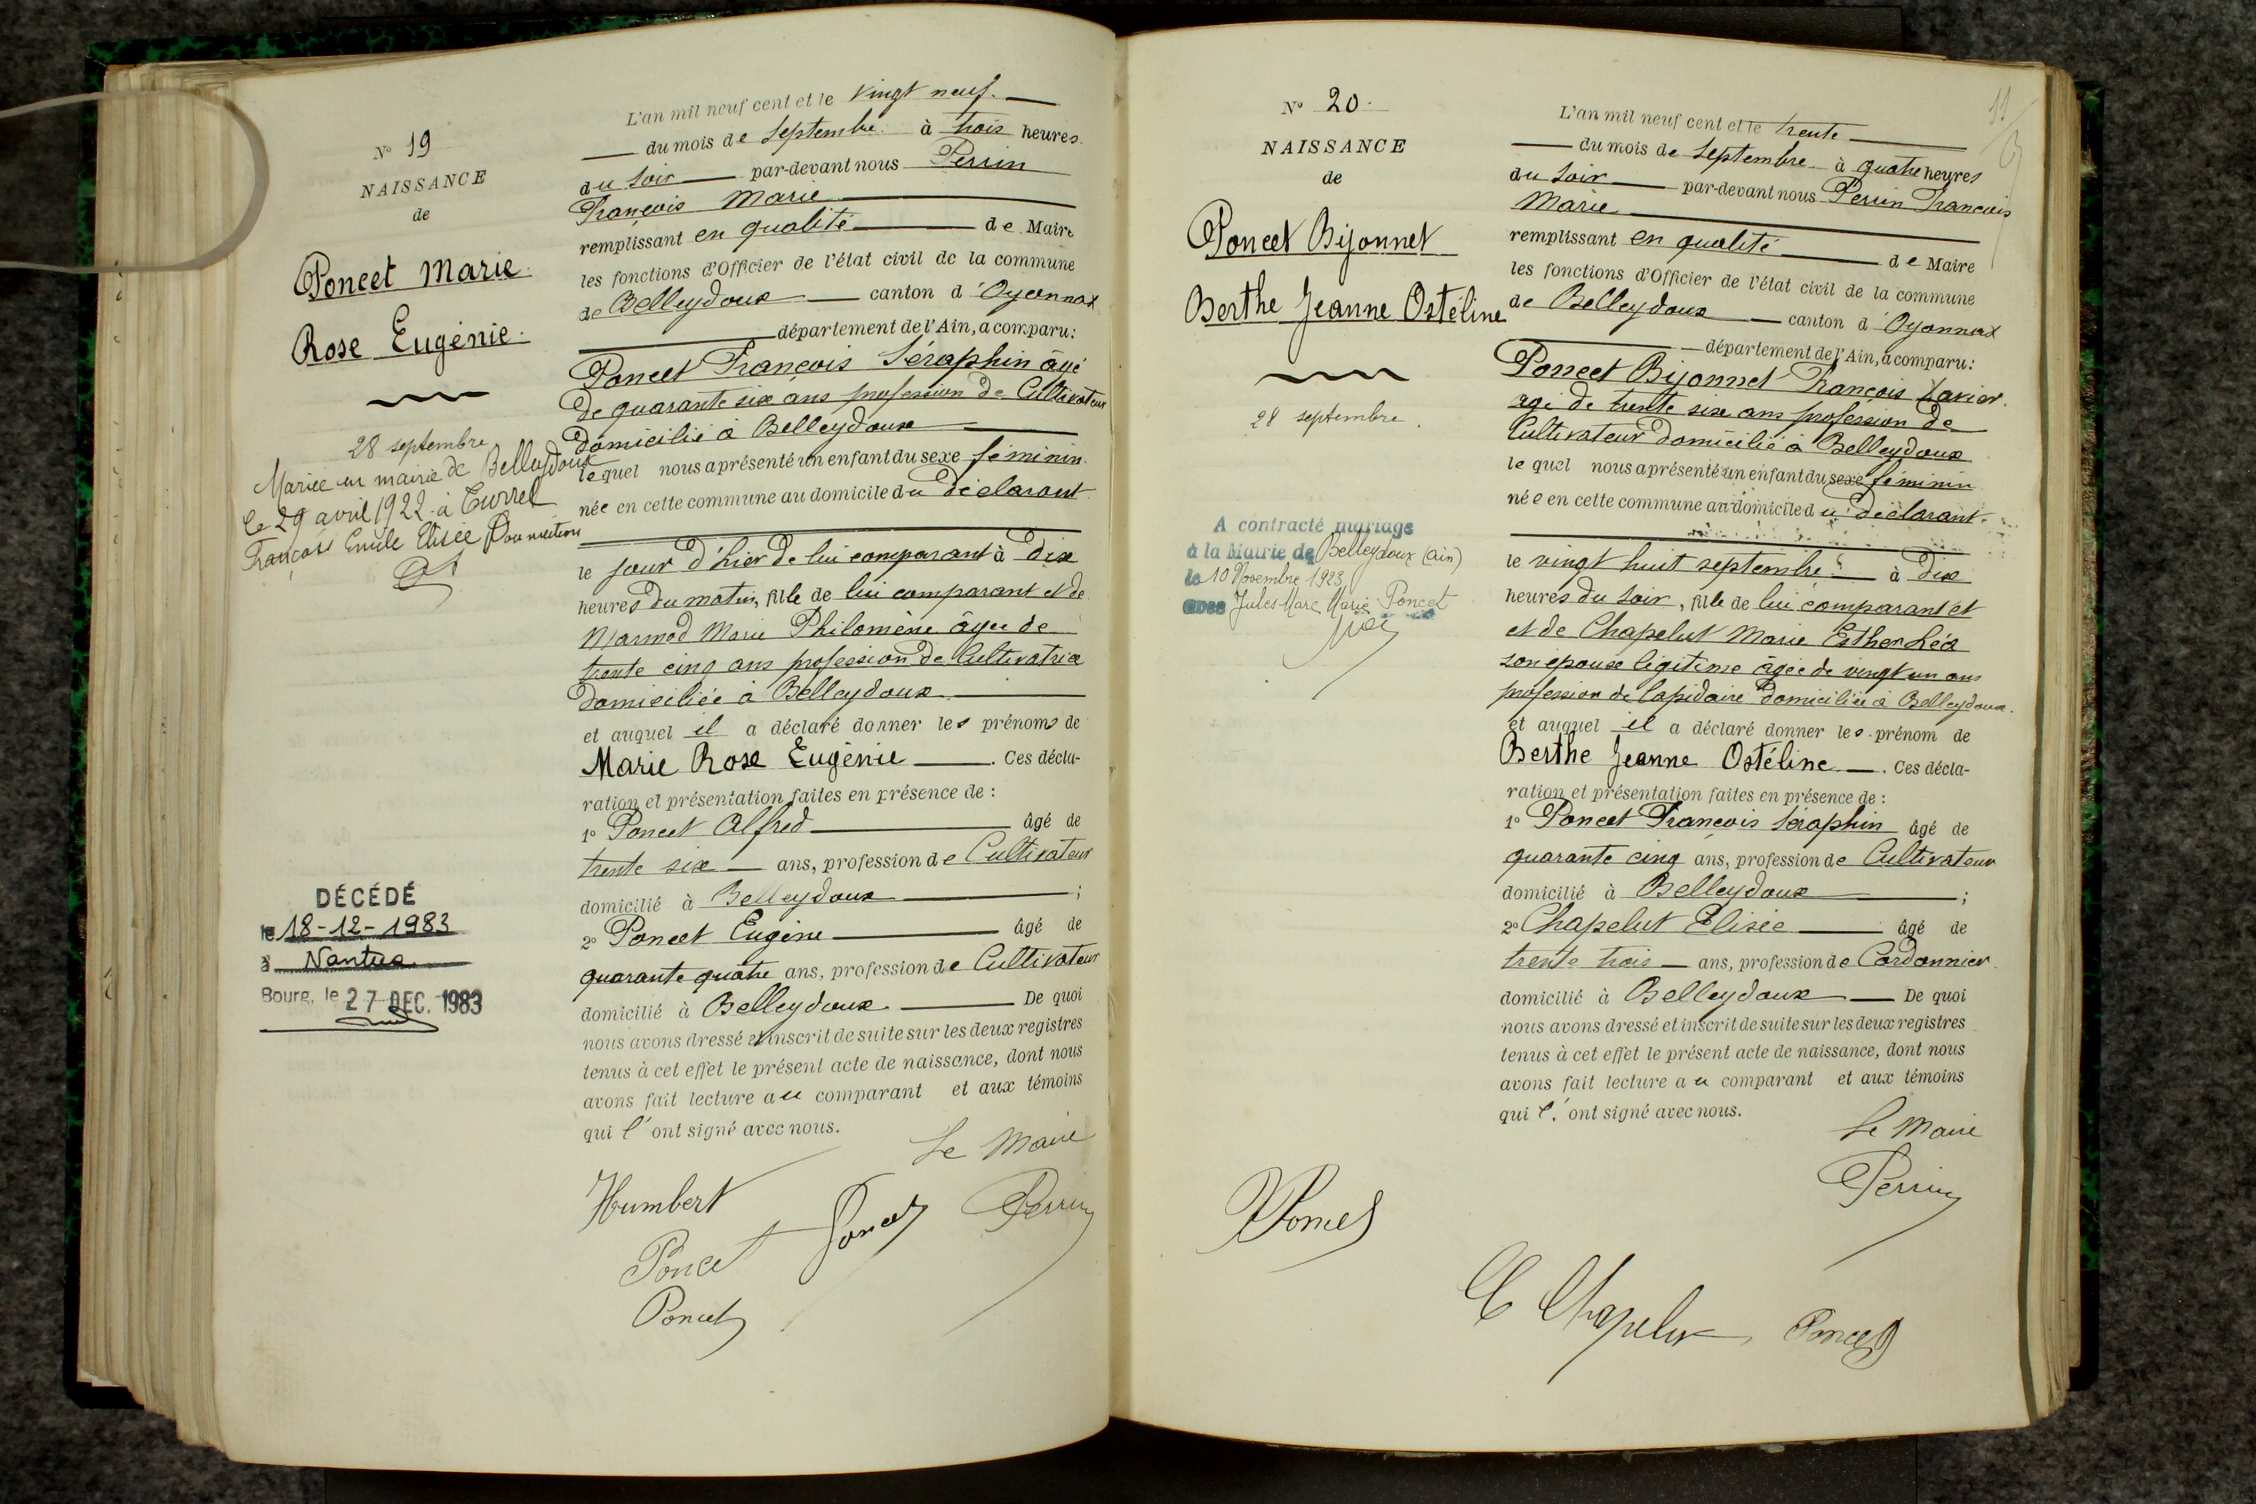 N° 19
NAISSANCE
de
Poncet Marie
Rose Eugénie
28 septembre
Mariée en mairie de Belleydoux
le 29 avril 1922 à Turrel
François Emile Elisée
DÉCÉDÉ
le 18-12-1983
à Nantua
Bourg, le 27 DEC. 1983
L'an mil neuf cent et le vingt neuf
du mois de septembre à trois heures
du soir par-devant nous Perrin
François Marie
remplissant en qualité de Maire
les fonctions d'Officier de l'état civil de la commune
de Belleydoux canton d'Oyonnax
département de l'Ain, a comparu:
Poncet François Séraphin âgé
de quarante six ans profession de Cultivateur
domicilié à Belleydoux
lequel nous a présenté un enfant du sexe féminin
née en cette commune au domicile du déclarant
le jour d'hier de lui comparant à dix
heures du matin, fille de lui comparant et de
Marmod Marie Philomène âgée de
trente cinq ans profession de Cultivatrice
domiciliée à Belleydoux
et auquel il a déclaré donner les prénoms de
Marie Rose Eugénie. Ces décla-
ration et présentation faites en présence de :
1° Poncet Alfred âgé de
trente six ans, profession de Cultivateur
domicilié à Belleydoux ;
2° Poncet Eugène âgé de
quarante quatre ans, profession de Cultivateur
domicilié à Belleydoux De quoi
nous avons dressé et inscrit de suite sur les deux registres
tenus à cet effet le présent acte de naissance, dont nous
avons fait lecture au comparant et aux témoins
qui l'ont signé avec nous.
Le Maire
Humbert
Poncet Poncet Perrin
Poncet
N° 20
NAISSANCE
de
Poncet Bijonnet
Berthe Jeanne Ostéline
28 septembre.
A contracté mariage
à la Mairie de Belleydoux (Ain)
le 10 Novembre 1923
avec Jules Marc Marie Poncet
11
L'an mil neuf cent et le trente
du mois de septembre à quatre heures
du soir par-devant nous Perrin François
Marie
remplissant en qualité de Maire
les fonctions d'Officier de l'état civil de la commune
de Belleydoux canton d'Oyonnax
département de l'Ain, a comparu:
Poncet Bijonnet François Xavier
agé de trente six ans profession de
Cultivateur domicilié à Belleydoux
lequel nous a présenté un enfant du sexe féminin
née en cette commune au domicile du déclarant.
le vingt huit septembre à dix
heures du soir, fille de lui comparant et
et de Chapelut Marie Esther Léa
son épouse légitime âgée de vingt un ans
profession de lapidaire domiciliée à Belleydoux.
et auquel il a déclaré donner les prénom de
Berthe Jeanne Ostéline. Ces décla-
ration et présentation faites en présence de :
1° Poncet François Séraphin âgé de
quarante cinq ans, profession de Cultivateur
domicilié à Belleydoux ;
2° Chapelut Elisée âgé de
trente trois ans, profession de Cordonnier
domicilié à Belleydoux De quoi
nous avons dressé et inscrit de suite sur les deux registres
tenus à cet effet le présent acte de naissance, dont nous
avons fait lecture au comparant et aux témoins
qui l'ont signé avec nous.
Le Maire
Perrin
Poncet
E Chapelut Poncet